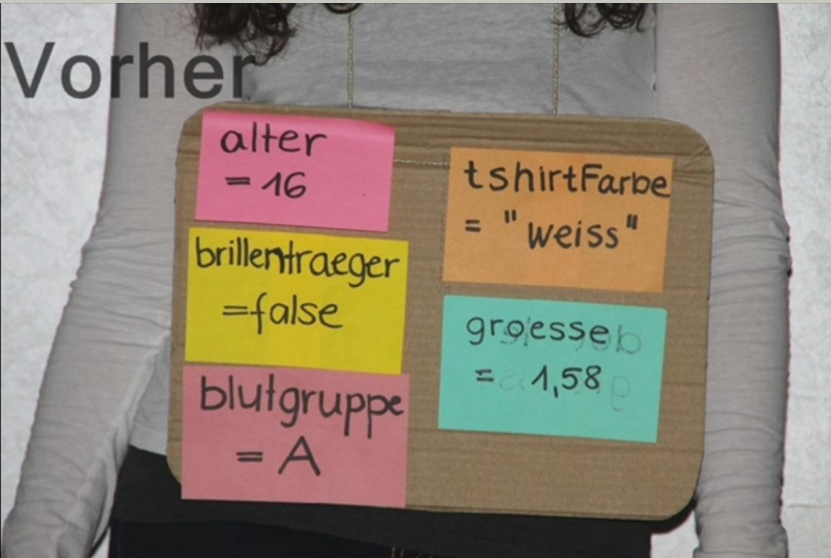 Vorher
alter
= 16
brillentraeger
=false
blutgruppe
= A
tshirtFarbe
= "weiss"
groesse
= 1,58